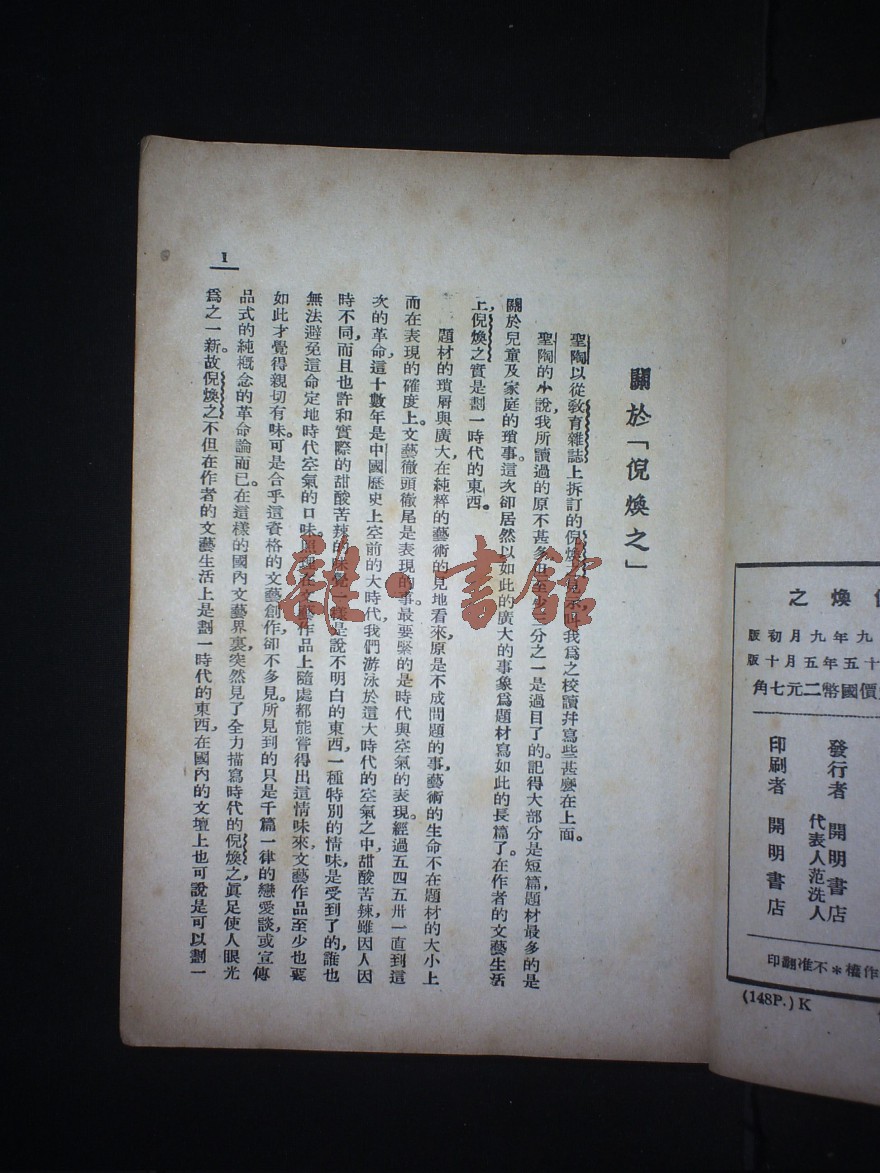 倪煥之
九年九月初版
十五年五月十版
價國幣二元七角
發行者 開明書店
代表人范洗人
印刷者 開明書店
作權＊不准翻印
(148P.) K
關於「倪煥之」
聖陶以從教育雜誌上拆訂的倪煥之見示叫我爲之校讀幷寫些甚麽在上面。
聖陶的小說，我所讀過的原不甚多，但至少三分之一是過目了的。記得大部分是短篇，題材最多的是
關於兒童及家庭的瑣事。這次卻居然以如此的廣大的事象爲題材寫如此的長篇了。在作者的文藝生活
上，倪煥之實是劃一時代的東西。
題材的瑣屑與廣大，在純粹的藝術的見地看來，原是不成問題的事，藝術的生命不在題材的大小上
而在表現的確度上。文藝徹頭徹尾是表現的事。最要緊的是時代與空氣的表現。經過五四五卅一直到這
次的革命，這十數年是中國歷史上空前的大時代，我們游泳於這大時代的空氣之中，甜酸苦辣，雖因人因
時不同，而且也許和實際的甜酸苦辣的味覺一樣是說不明白的東西，一種特別的情味是受到了的，誰也
無法避免這命定地時代空氣的口味。照理在文藝作品上隨處都能嘗得出這情味來，文藝作品至少也要
如此才覺得親切有味。可是合乎這資格的文藝創作，卻不多見。所見到的只是千篇一律的戀愛談，或宣傳
品式的純概念的革命論而已。在這樣的國內文藝界裏，突然見了全力描寫時代的倪煥之，眞足使人眼光
爲之一新。故倪煥之不但在作者的文藝生活上是劃一時代的東西，在國內的文壇上也可說是可以劃一
1
雜·書館